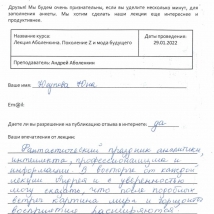 Друзья! Мы будем очень признательны, если вы уделите несколько минут, для
заполнения анкеты. Мы хотим сделать наши лекции еще интереснее и
продуктивнее.
Название курса:
Лекция Аболенкина. Поколение Z и мода будущего
Дата проведения:
29.01.2022
Преподаватель: Андрей Аболенкин
Ваше имя: Юля
Em@il:
Даете ли вы разрешение на публикацию отзыва в интернете: да
Ваши впечатления от лекции:
Фантастический праздник аналитики,
интеллекта, профессионализма и
информации. В восторге от каждой
лекции Андрея и с уверенностью
могу сказать, что после подобных
встреч картина мира и горизонт
восприятия расширяются.